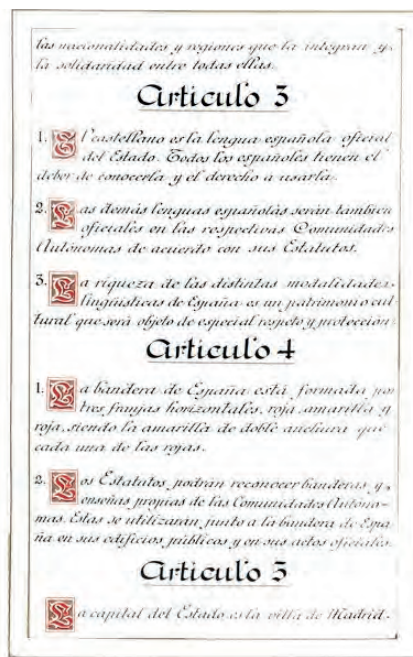 las nacionalidades y regiones que la integran y
la solidaridad entre todas ellas.
Artículo 3
1. El castellano es la lengua española oficial
del Estado. Todos los españoles tienen el
deber de conocerla y el derecho a usarla.
2. Las demás lenguas españolas serán también
oficiales en las respectivas Comunidades
Autónomas de acuerdo con sus Estatutos.
3. La riqueza de las distintas modalidades
lingüísticas de España es un patrimonio cul
tural que será objeto de especial respeto y protección
Artículo 4
1. La bandera de España está formada por
tres franjas horizontales, roja, amarilla y
roja, siendo la amarilla de doble anchura que
cada una de las rojas.
2. Los Estatutos podrán reconocer banderas y
enseñas propias de las Comunidades Autóno-
mas. Estas se utilizarán junto a la bandera de Espa
ña en sus edificios públicos y en sus actos oficiales.
Artículo 5
La capital del Estado es la villa de Madrid.